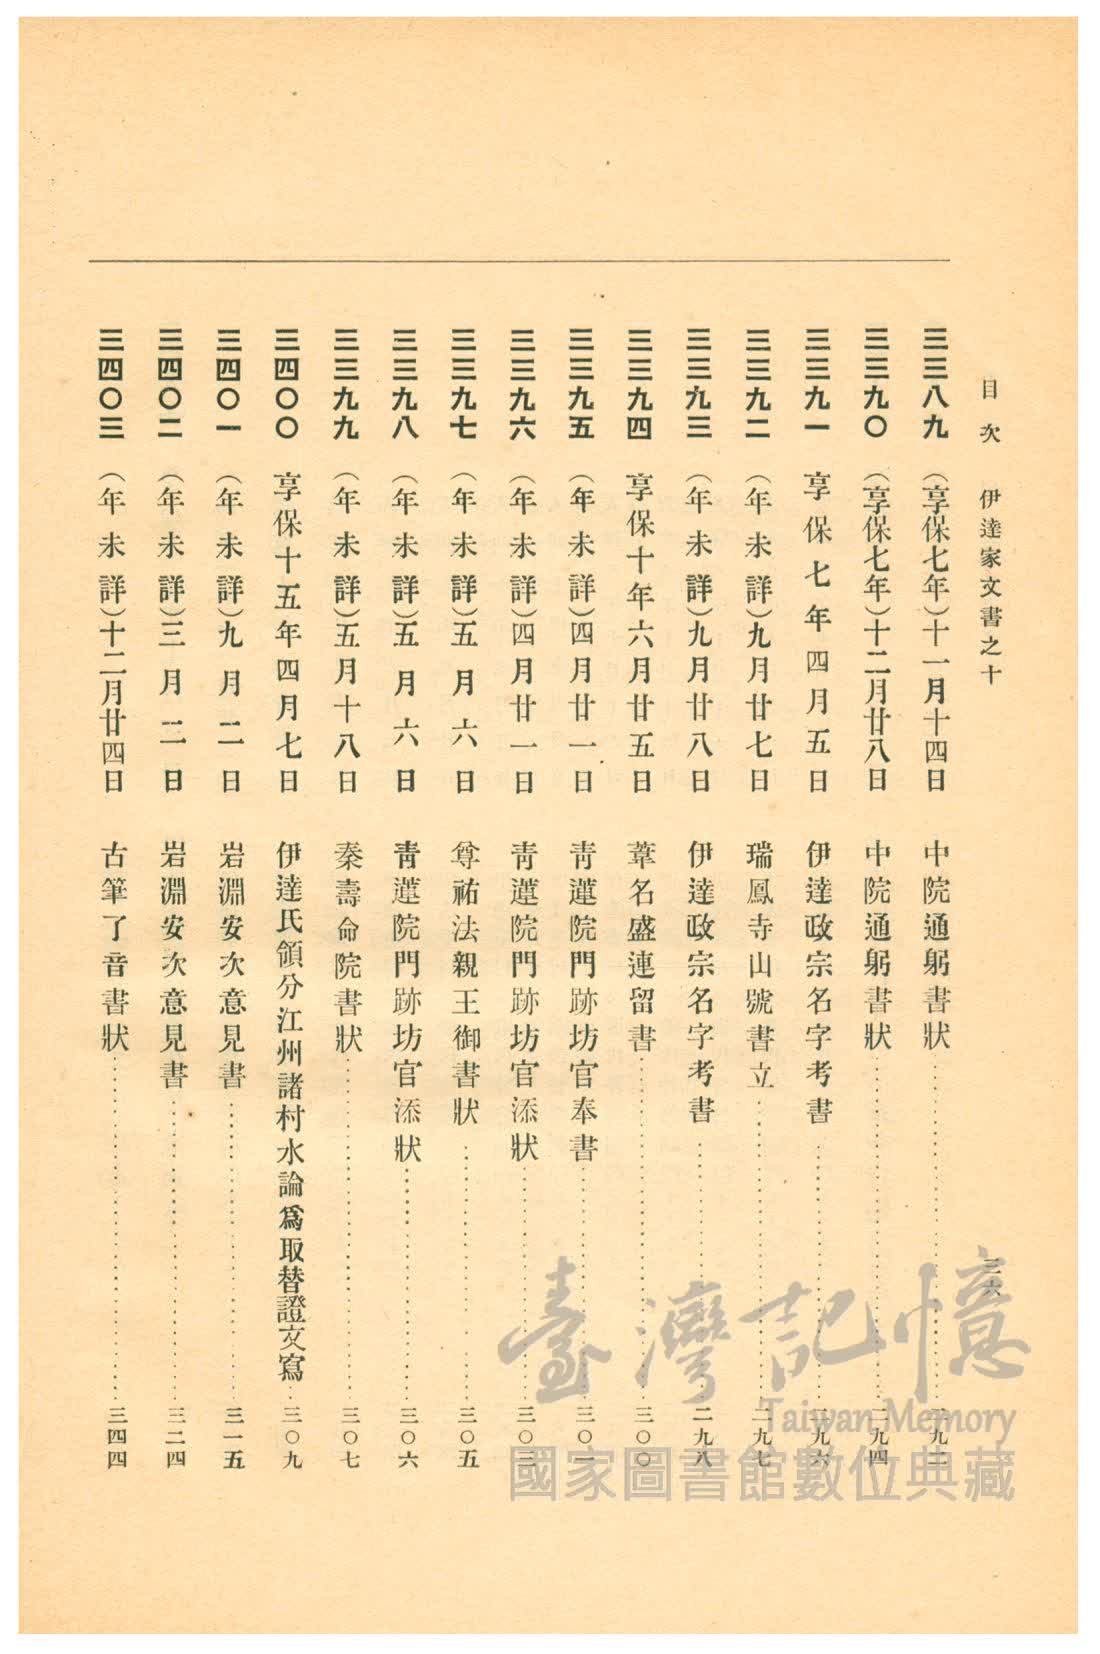 目次　伊達家文書之十　三六
三三八九　（享保七年）十一月十四日　中院通躬書狀……二九二
三三九〇　（享保七年）十二月廿八日　中院通躬書狀……二九四
三三九一　享保七年四月五日　伊達政宗名字考書……二九六
三三九二　（年未詳）九月廿七日　瑞鳳寺山號書立……二九七
三三九三　（年未詳）九月廿八日　伊達政宗名字考書……二九八
三三九四　享保十年六月廿五日　葦名盛連留書……三〇〇
三三九五　（年未詳）四月廿一日　靑蓮院門跡坊官奉書……三〇一
三三九六　（年未詳）四月廿一日　靑蓮院門跡坊官添狀……三〇三
三三九七　（年未詳）五月六日　尊祐法親王御書狀……三〇五
三三九八　（年未詳）五月六日　靑蓮院門跡坊官添狀……三〇六
三三九九　（年未詳）五月十八日　秦壽命院書狀……三〇七
三四〇〇　享保十五年四月七日　伊達氏領分江州諸村水論爲取替證文寫……三〇九
三四〇一　（年未詳）九月二日　岩淵安次意見書……三一五
三四〇二　（年未詳）三月二日　岩淵安次意見書……三二四
三四〇三　（年未詳）十二月廿四日　古筆了音書狀……三四四
臺灣記憶
Taiwan Memory
國家圖書館數位典藏